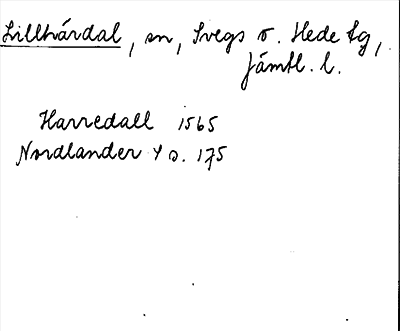 Lillhärdal, sn, Svegs o. Hede tg,
Jämtl. l.
Harredall 1565
Nordlander s. 175